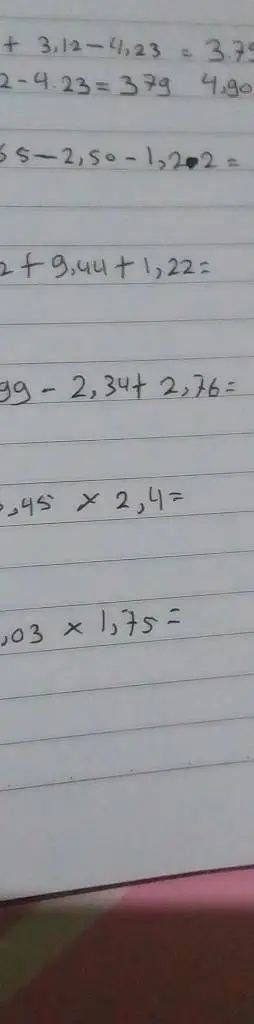 + 3,12 - 4,23 = 3.79
2 - 4.23 = 379 4,90
5 - 2,50 - 1,202 =
2 + 9,44 + 1,22 =
99 - 2,34 + 2,76 =
,45 × 2,4 =
,03 × 1,75 =